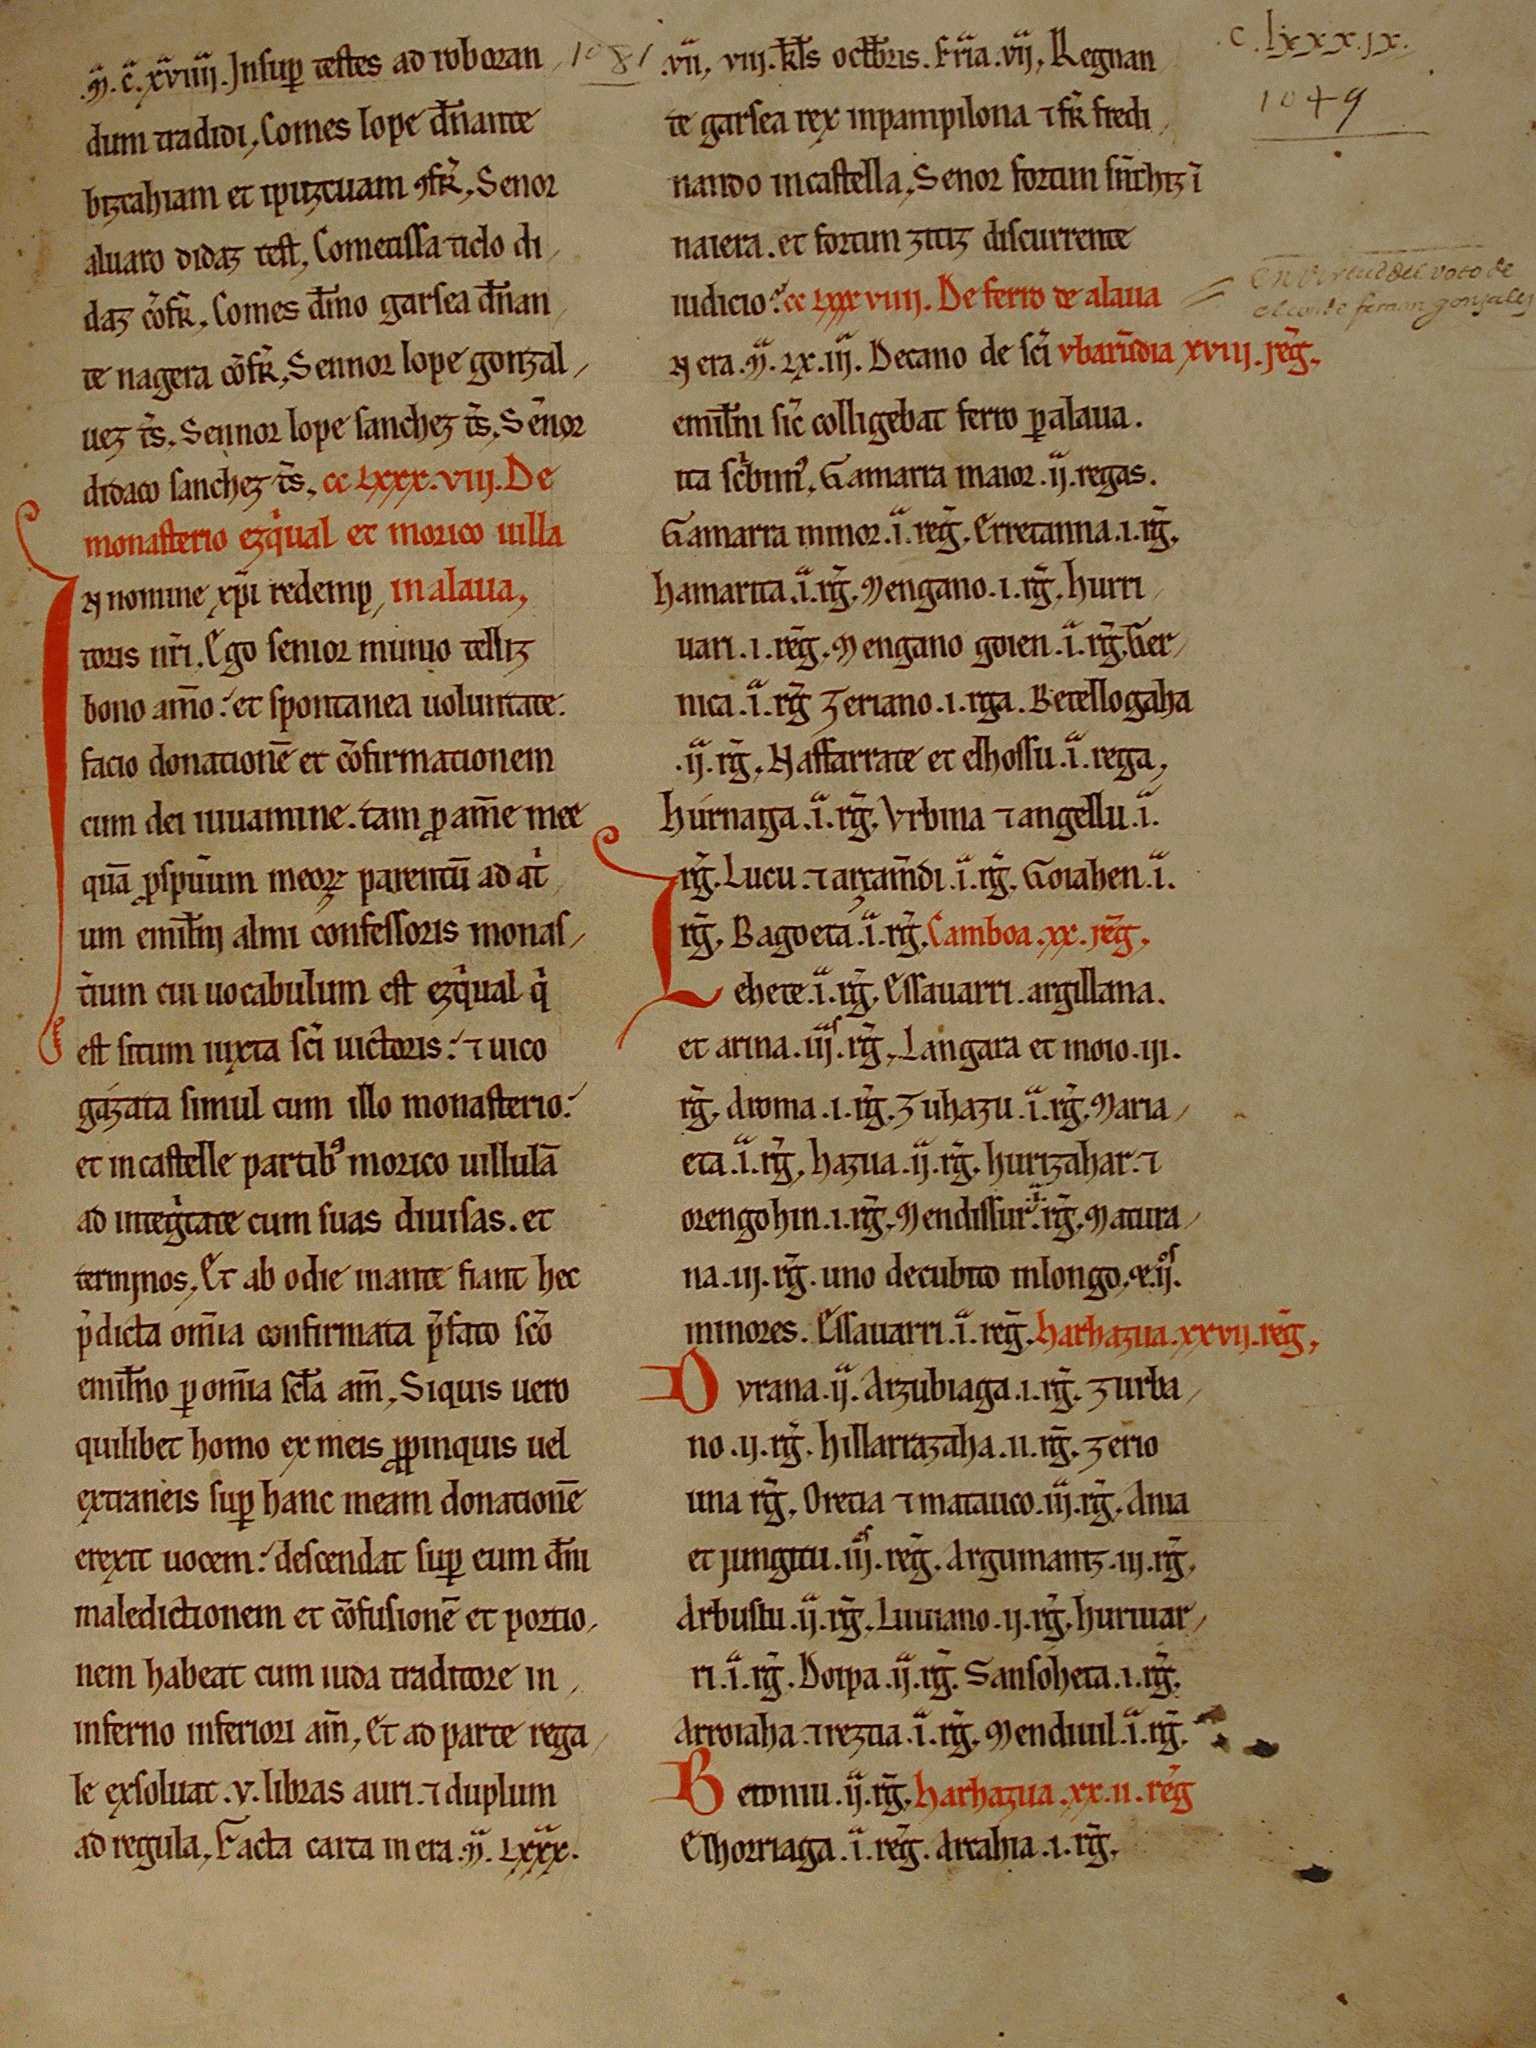 .m̃.c̃.xṽiiii. Insup̱ testes ad roboran
dum tradidi, Comes lope dñante
bizcahiam et ipuzcuam ꝯfr̃, Senor
aluaro didaz test, Cometissa ticlo di
daz cõfr̃, Comes dm̃o garsea dñan
te nagera cõfr̃, Sennor lope gonzal
uez ts̃, Sennor lope sanchez ts̃, Sẽnor
didaco sanchez ts̃, cc Lxxx.viii. De
monasterio ezq̇ual et morico uilla
in alaua,
IN nomine xp̃i redemp
toris nr̃i. Ego senior munio telliz
bono aĩmo: et spontanea uoluntate.
facio donationẽ et cõfirmationem
cum dei iuuamine. tam ꝓ am̃e mee
quã ꝓspũum meoꝝ parentũ ad at̃
um emil̃ni almi confessoris monas
t̃ium cui uocabulum est ezq̇ual q̇
est situm iuxta sc̃i uictoris: ⁊ uico
gazata simul cum illo monasterio:
et in castelle partibꝰ morico uillulã
ad integ̃tate cum suas diuisas. et
terminos, Et ab odie inante fiant hec
p̃dicta om̃ia confirmata p̃fato sc̃o
emil̃no p̱ om̃ia sc̃la am̃, Siquis uero
quilibet homo ex meis ꝓpinquis uel
extraneis sup̱ hanc meam donationẽ
erexit uocem: descendat sup̱ eum dñi
maledictionem et cõfusionẽ et portio
nem habeat cum iuda traditore in
inferno inferiori am̃, Et ad parte rega
le exsoluat .v. libras auri. ⁊ duplum
ad regula, Facta carta in era .m̃. Lxxx.
1081
.vii, viii. kl̃s octb̃ris. fr̃ia .vij, Regnan
te garsea rex in pampilona ⁊ fr̃ fredi
nando in castella, Senor fortun sñchiz ĩ
naiera. et fortun ztiz discurrente
iudicio: cc Lxxx viiii. De ferro de alaua
IN era .m̃. Lx.iij. Decano de sc̃i vbarũdia xviii. reg̃,
emil̃ni sic̃ colligebat ferro p̱ alaua.
ita sc̃bimꝰ, Gamarra maior .ij. regas.
Gamarra minor .i. reg̃. Erretanna .i. rg̃,
hamarita .i. rg̃, Mengano .i. rg̃, hurri
uari .i. reg̃, Mengano goien .i. rg̃. Ger
nica .i. rg̃ Zeriano .i. rga. Betellogaha
.ij. rg̃, Naffarrate et elhossu .i. rega,
húrnaga .i. rg̃, Vrbina ⁊ angellu .i.
rg̃. Lucu ⁊ arzam̃di .i. rg̃. Goiahen .i.
rg̃, Bagoeta .i. rg̃, Camboa .xx. reg̃,
Lehete .i. rg̃, Essauarri. argillana.
et arina .iij. rg̃, Langara et moio .iij.
rg̃, aroma .i. rg̃. Zuhazu .i. rg̃. Maria
eta .i. rg̃, hazua .ij. rg̃. hurizahar. ⁊
orengohin .i. rg̃, Mendissur .i. rg̃. Matura
na .iij. rg̃. uno de cubito in longo, ⁊ .ijos.
minores. Essauarri .i. reg̃. harhazua .xxvii. reg̃,
Dvrana .ij. Arzubiaga .i. rg̃. Zurba
no .ij. rg̃. hillarrazaha .ii. rg̃. Zerio
una rg̃, Oretia ⁊ matauco .iij. rg̃. Ania
et jungitu .iij. reg̃. Argumaniz .iij. rg̃,
Arbustu .ij. rg̃, Luuiano .ij. rg̃, huriuar
ri .i. rg̃. Doipa .ij. rg̃. Sansoheta .i. rg̃,
Arroiaha ⁊ reztia .i. rg̃. Mendiuil .i. rg̃.
Betoniu .ij. rg̃, harhazua .xx.ii. reg̃
Elhorriaga .i. reg̃. Arcahia .i. rg̃,
.c. lxxx.jx.
1049
en virtud del voto de
el conde fernan gonzalez